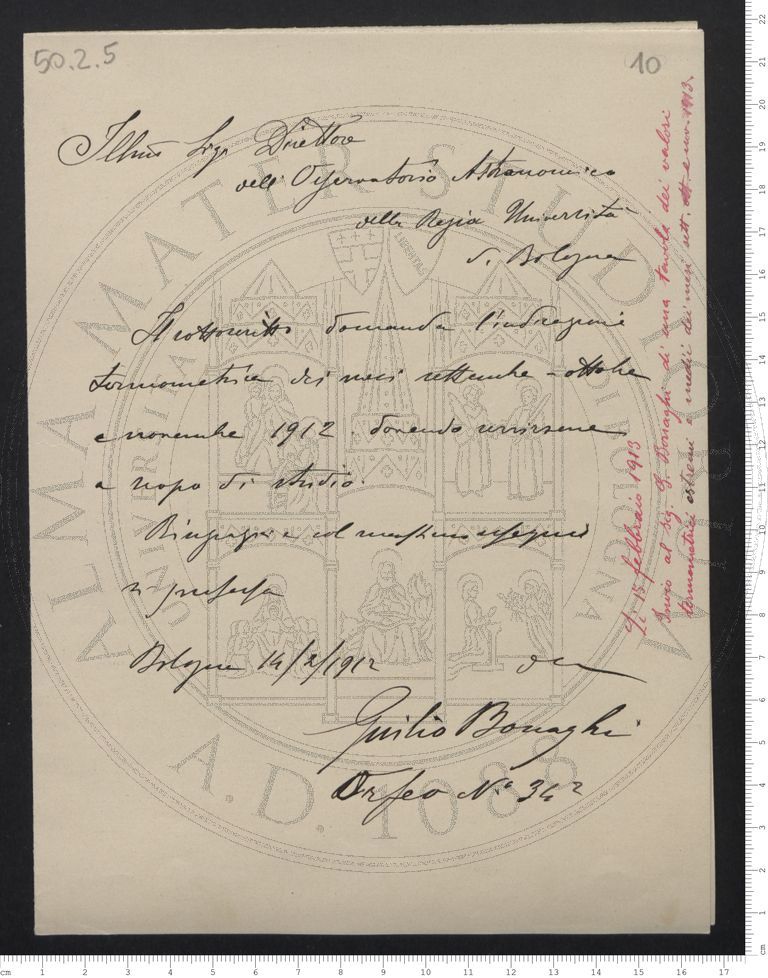 50.2.5
10
Illmo Sigr Direttore
dell'Osservatorio Astronomico
della Regia Università
di Bologna
Il sottoscritto domanda l'indicazione
termometrica dei mesi settembre - ottobre
e novembre 1912 dovendo servirsene
a scopo di studio.
Ringrazia e col massimo ossequio
si professa
Bologna 14/2/1912
Giulio Bonaghi
Orfeo No 34
Li 15 febbraio 1913
Invio al Sig. G. Bonaghi di una tavola dei valori
termometrici estremi e medii dei mesi sett. ott. e nov. 1913.
ALMA MATER STUDIORUM
A.D. 1088
LIBERTAS